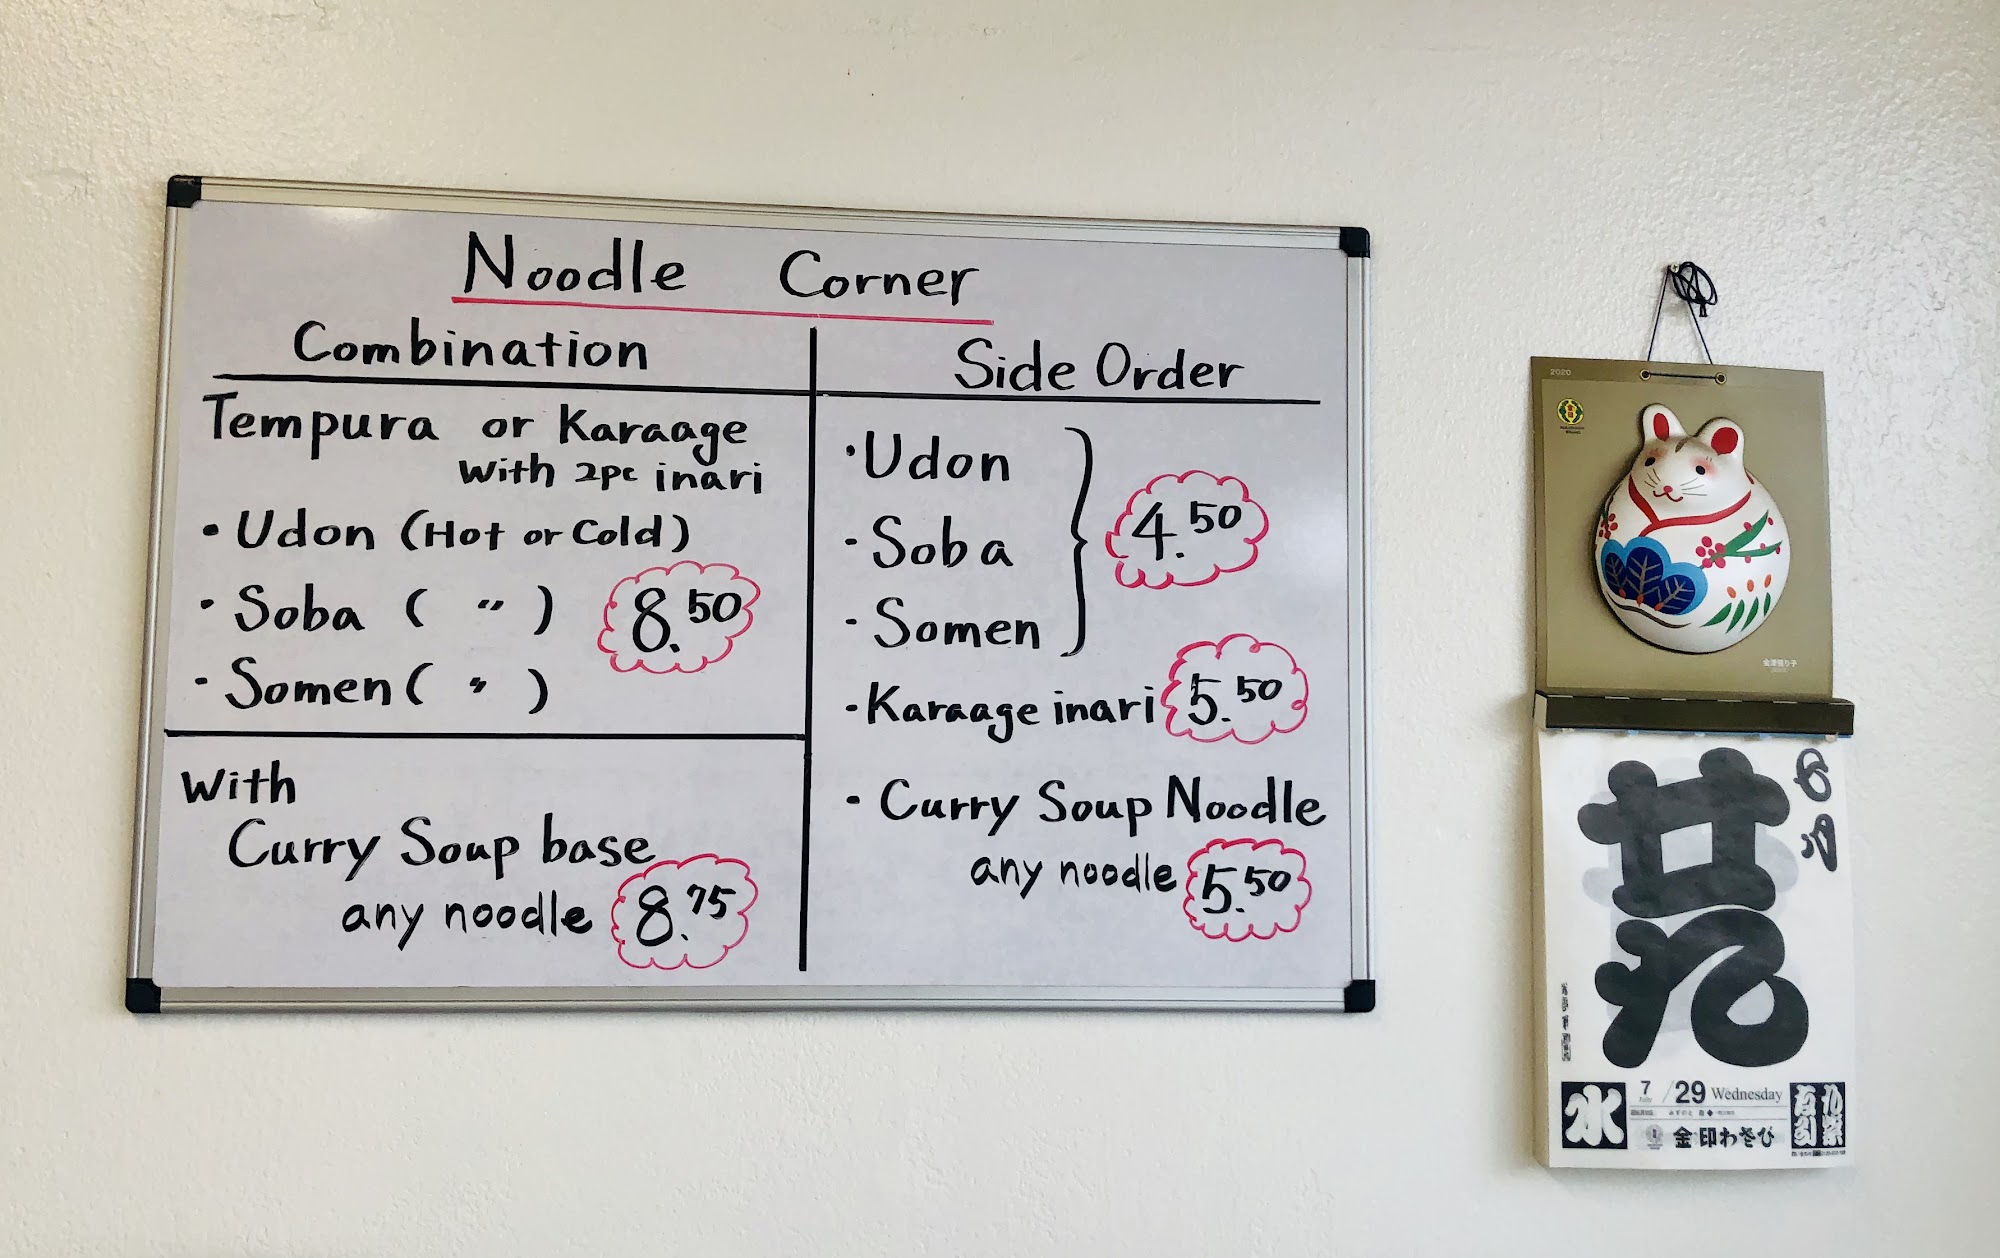 Noodle Corner
Combination
Tempura or Karaage
with 2pc inari
• Udon (Hot or Cold)
• Soba ( 〃 )
• Somen ( 〃 )
8.50
With
Curry Soup base
any noodle 8.75
Side Order
• Udon
• Soba
• Somen
4.50
• Karaage inari 5.50
• Curry Soup Noodle
any noodle 5.50
2020
金澤張り子
廿九
水
7 / 29 Wednesday
July
金印わさび